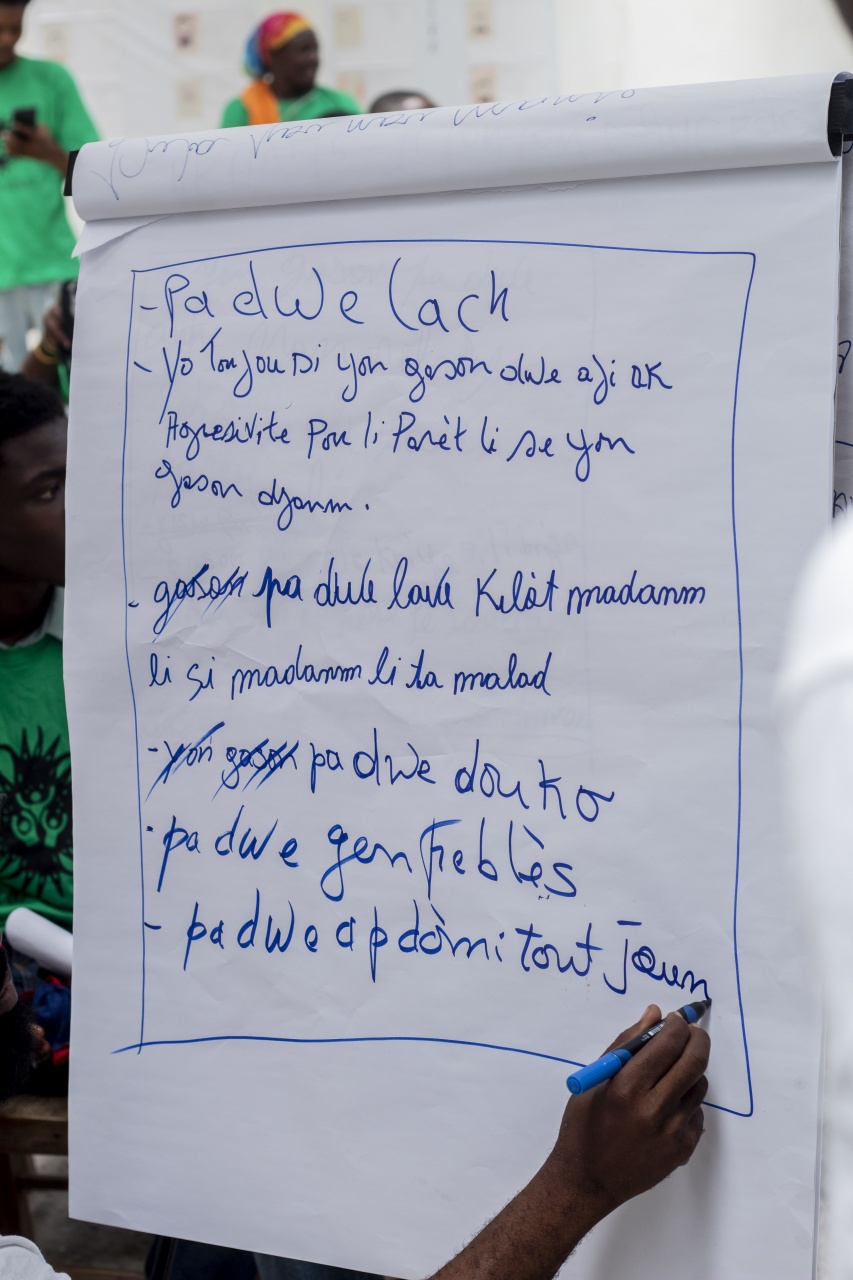 - Pa dwe lach
- Yo Toujou Di yon gason dwe aji ak
Agresivite Pou li Parèt li se yon
gason djanm.
- gason pa dwe lave kilòt madanm
li si madanm li ta malad
- yon gason pa dwe douko
- pa dwe gen fieblès
- pa dwe ap dòmi tout joun